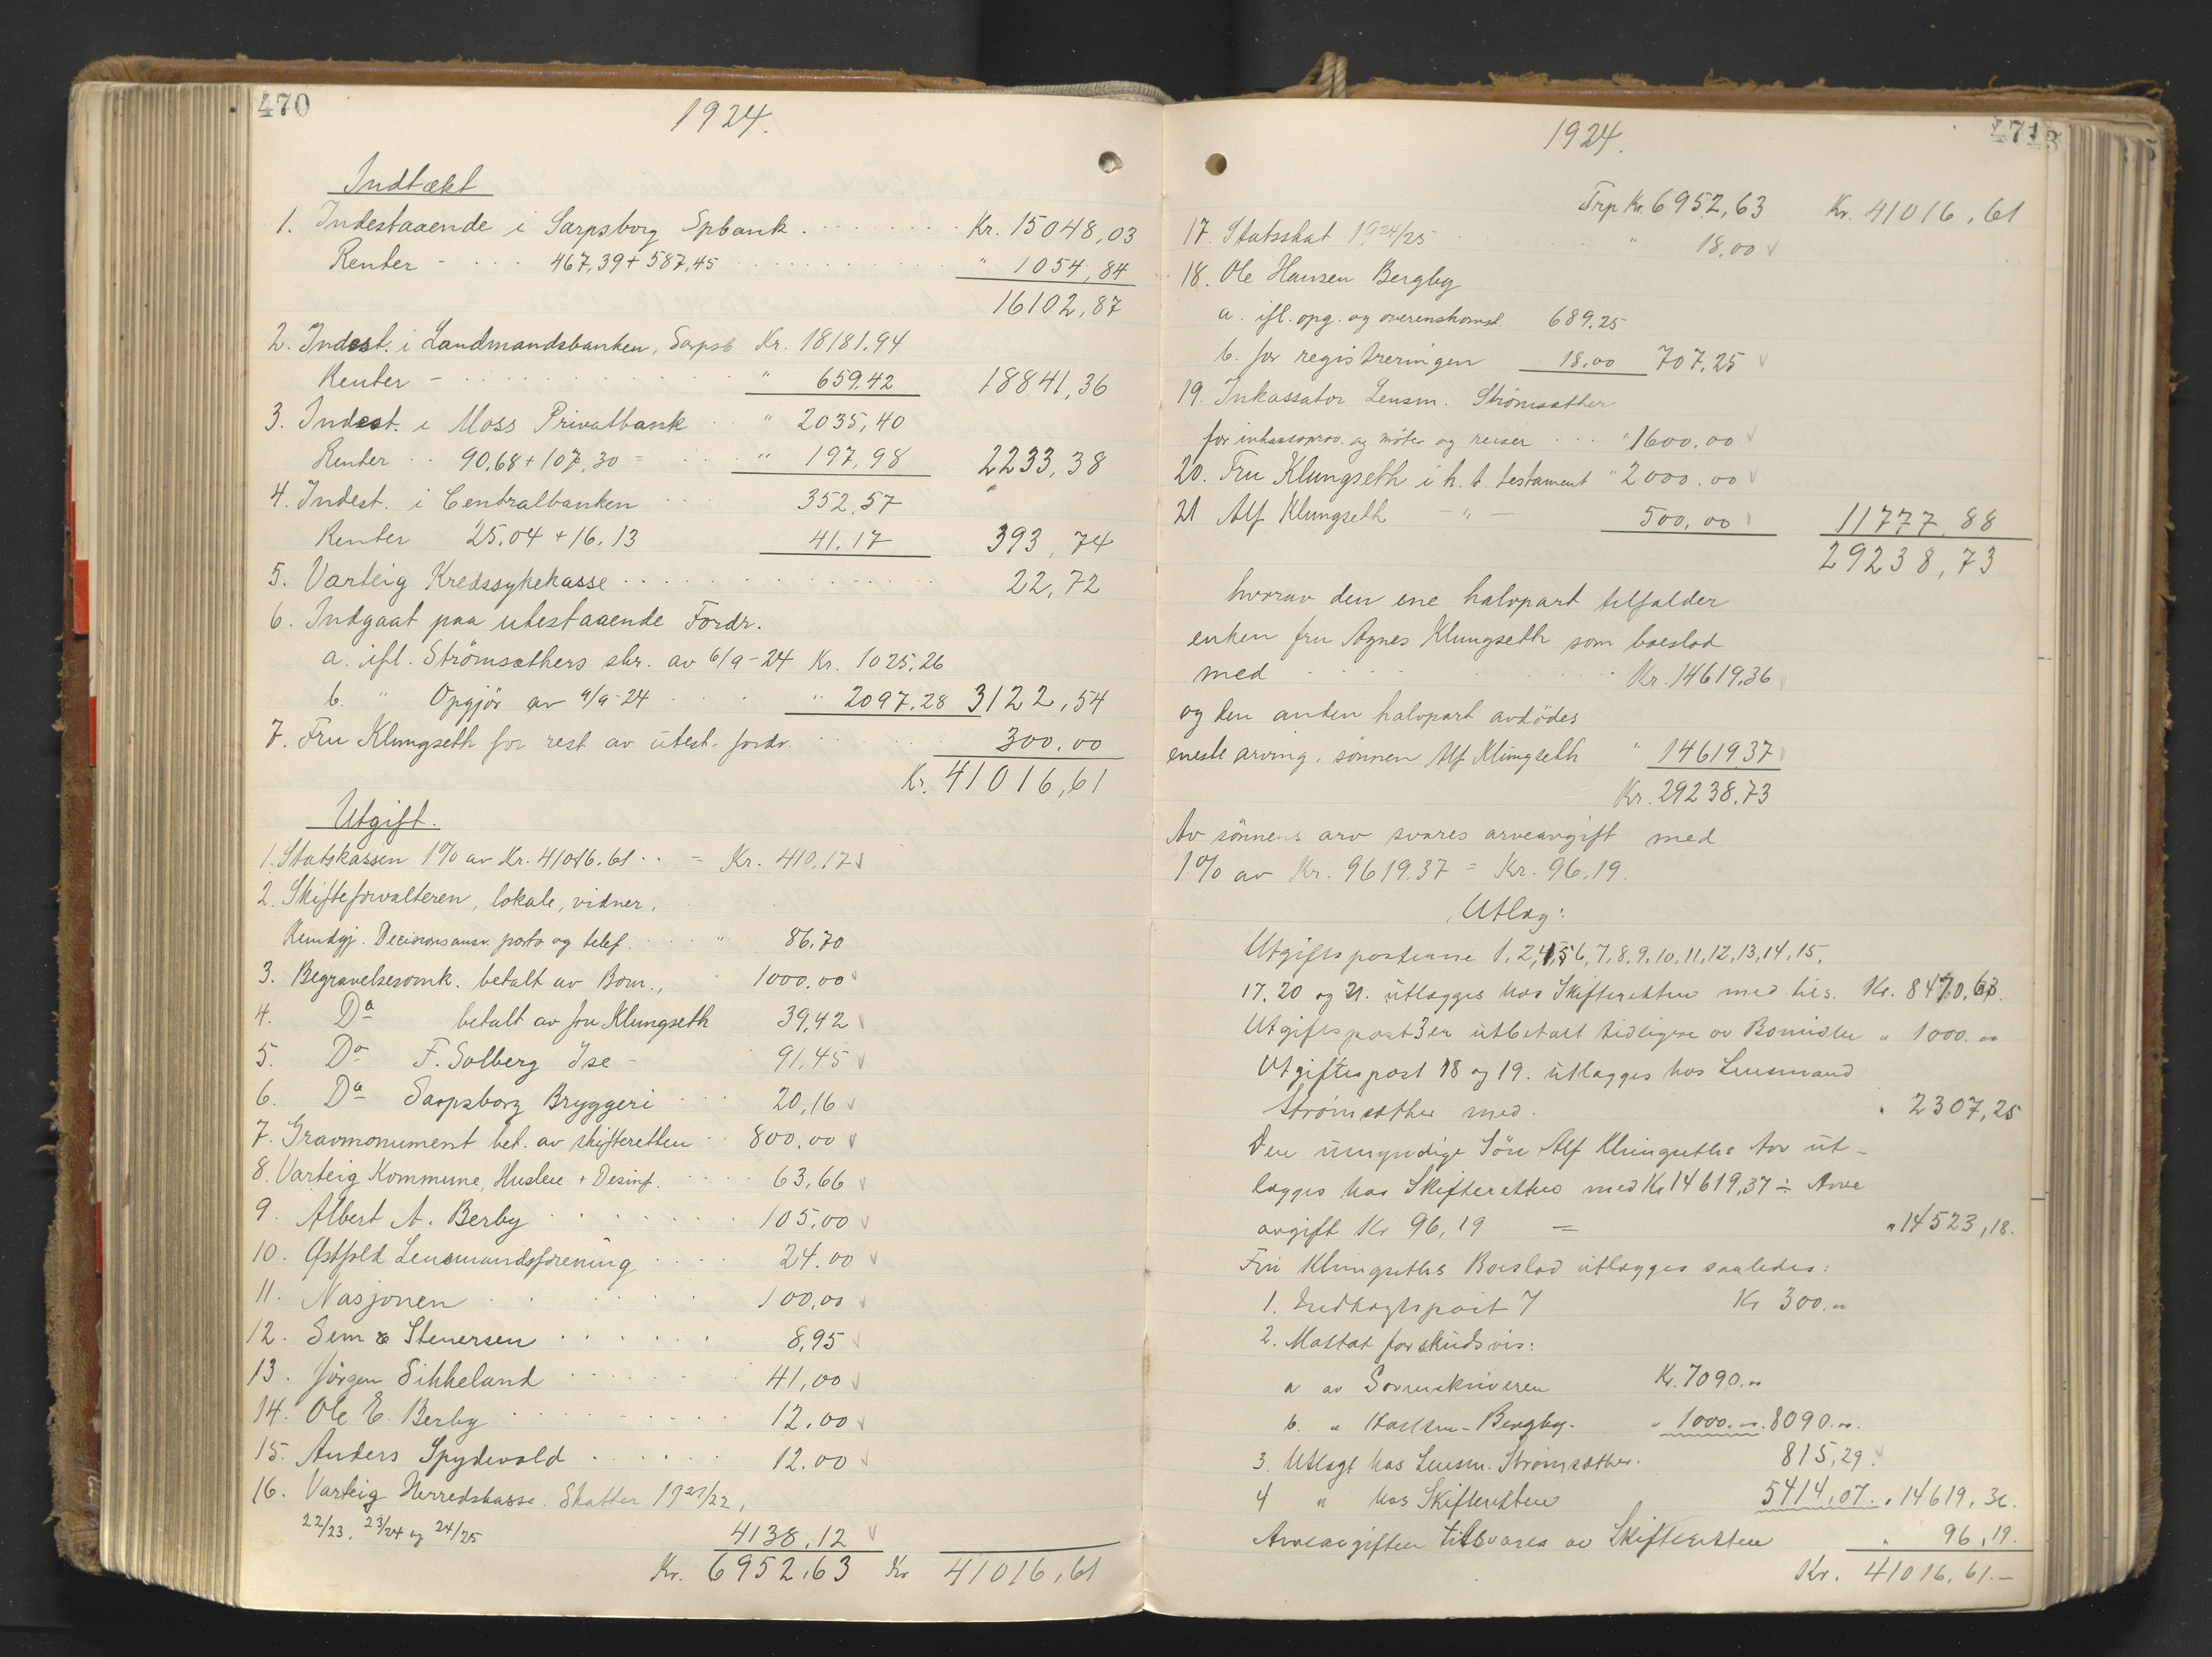 470
1924.
Indtækt
1. Indestaaende i Sarpsborg Spbank . . . . . . . Kr. 15048,03
Renter - . . . 467,39 + 587,45 . . . . . . . . . " 1054,84
16102,87
2. Indest. i Landmandsbanken, Sarpsb Kr. 18181.94
Renter - . . . . . . . . . " 659,42 18841,36
3. Indest. i Moss Privatbank . . " 2035,40
Renter . . 90,68 + 107,30 = . . . " 197,98 2233,38
4. Indest. i Centralbanken . . 352,57
Renter 25.04 + 16.13 41.17 393,74
5. Varteig Kredssykekasse . . . . . . . . . . . . 22,72
6. Indgaat paa utestaaende Fordr.
a. ifl. Strömsæthers skr. av 6/9-24 Kr. 1025,26
b. " Opgjör av 9/9-24 . . . . " 2097,28 3122,54
7. Fru Klungseth for rest av utest. fordr. . . . 300.00
Kr. 41016,61
Utgift.
1. Statskassen 1% av Kr. 41016.61 . . = Kr. 410,17
2. Skifteforvalteren, lokale, vidner,
Kundgj. Decisionsansv. porto og telef. . . . " 86,70
3. Begravelsesomk. betalt av Bom., " 1000.00
4. Do betalt av fru Klungseth 39,42
5. Do F. Solberg Ise - 91,45
6. Do Sarpsborg Bryggeri . . . 20,16
7. Gravmonument bet. av skifteretten . . 800.00
8. Varteig Kommune, Husleie + Desinf. . . . . 63,66
9. Albert A. Berby . . . . . . . 105,00
10. Østfold Lensmandsforening . . . . 24.00
11. Nasjonen . . . . . . 100,00
12. Sem & Stenersen . . . . . . 8,95
13. Jörgen Sikkeland . . . . . . 41,00
14. Ole E. Berby . . . . . . . . 12.00
15. Anders Spydevold . . . . . . 12.00
16. Varteig Herredskasse. Skatter 1921/22,
22/23, 23/24 og 24/25 4138,12
Kr. 6952,63 Kr 41016,61
471
1924.
Trp Kr. 6952,63 Kr. 41016,61
17. Statsskat 1924/25 " 18,00
18. Ole Hansen Bergby
a. ifl. opg. og overenskomst. 689,25
b. for registreringen 18,00 707,25
19. Inkassator Lensm. Strömsæther
for inkassoprov. og möter og reiser . . . " 1600.00
20. Fru Klungseth i h. t. testament " 2000.00
21 Alf Klungseth - " - 500,00 11777.88
29238,73
hvorav den ene halvpart tilfalder
enken fru Agnes Klungseth som boeslod
med . . . . . . . Kr. 14619,36
og den anden halvpart avdödes
eneste arving, sönnen Alf Klungseth " 14619,37
Kr. 29238,73
Av sönnens arv svares arveavgift med
1% av Kr. 9619.37 = Kr. 96,19.
Utlæg:
Utgiftsposterne 1, 2, 4, 5, 6, 7, 8, 9, 10, 11, 12, 13, 14, 15,
17, 20 og 21. utlægges hos Skifteretten med tils. Kr. 8470,63.
Utgiftspost 3 er utbetalt tidligere av Bomidler " 1000. "
Utgiftspost 18 og 19. utlægges hos Lensmand
Strömsæther med. " 2307,25
Den umyndige Sön Alf Klungseths Arv ut-
lægges hos Skifteretten med Kr 14619,37 ÷ Arve
avgift Kr 96,19 = " 14523,18.
Fru Klungseths Boeslod utlægges saaledes:
1. Indtægtspost 7 Kr 300. "
2. Mottat forskudsvis:
a av Sorenskriveren Kr. 7090. "
b. " Bergby. " 1000. " 8090. "
3. Utlagt hos Lensm. Strömsæther. 815,29.
4 " hos Skifteretten 5414,07. " 14619,36.
Arveavgiften tilsvares av Skifteretten " 96,19.
Kr. 41016,61.-